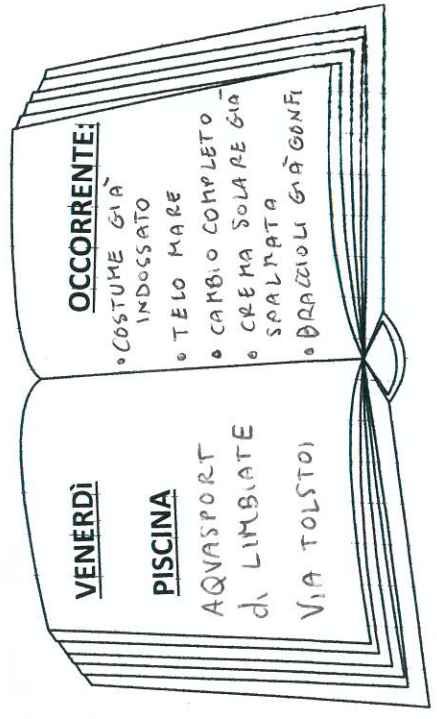 VENERDÌ
PISCINA
AQVASPORT
di LIMBIATE
VIA TOLSTOI
OCCORRENTE:
• COSTUME GIÀ
INDOSSATO
• TELO MARE
• CAMBIO COMPLETO
• CREMA SOLARE GIÀ
SPALMATA
• BRACCIOLI GIÀ GONFI